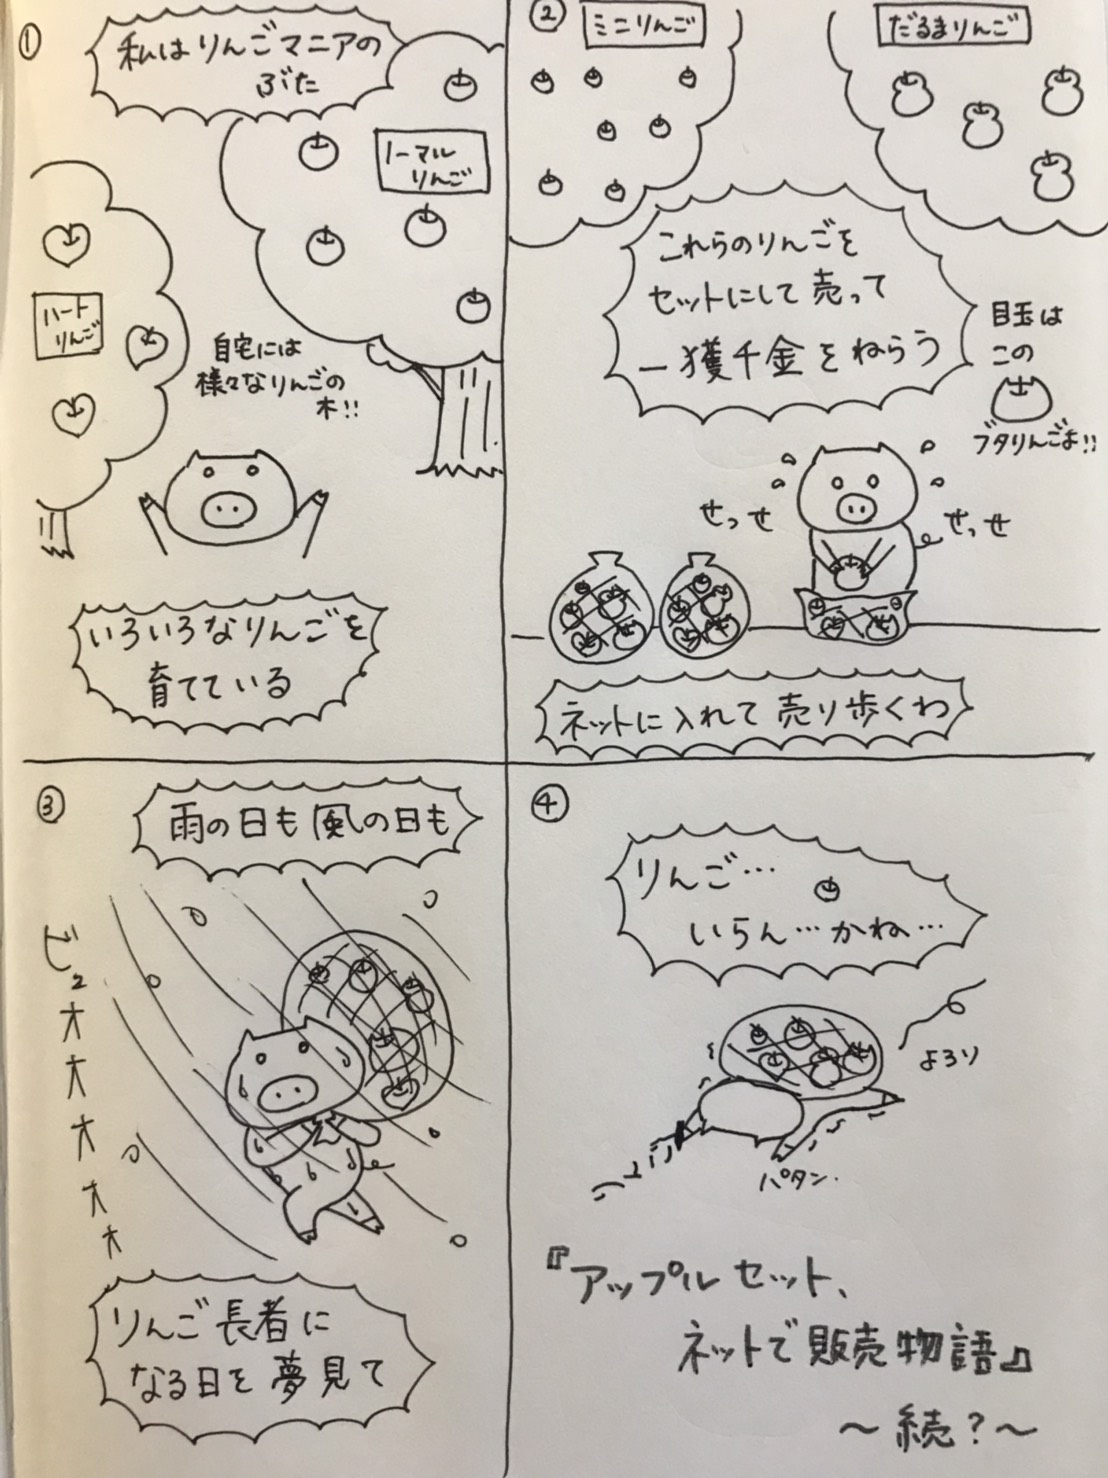 ①
私はりんごマニアの
ぶた
ノーマル
りんご
ハート
りんご
自宅には
様々なりんごの
木!!
いろいろなりんごを
育てている
②
ミニりんご
だるまりんご
これらのりんごを
セットにして売って
一獲千金をねらう
目玉は
この
ブタりんごよ!!
せっせ
せっせ
ネットに入れて売り歩くわ
③
雨の日も風の日も
ビュオオオオオ
りんご長者に
なる日を夢見て
④
りんご…
いらん…かね…
よろり
パタン.
『アップルセット、
ネットで販売物語』
〜続?〜